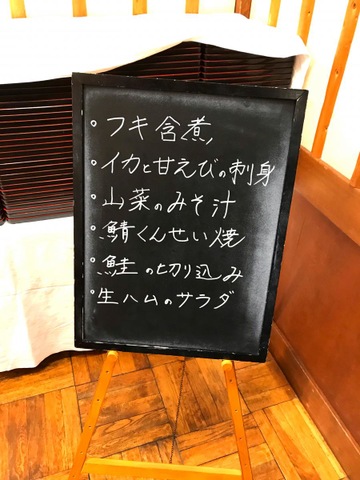 ◦フキ含煮
◦イカと甘えびの刺身
◦山菜のみそ汁
◦鯖くんせい焼
◦鮭の切り込み
◦生ハムのサラダ